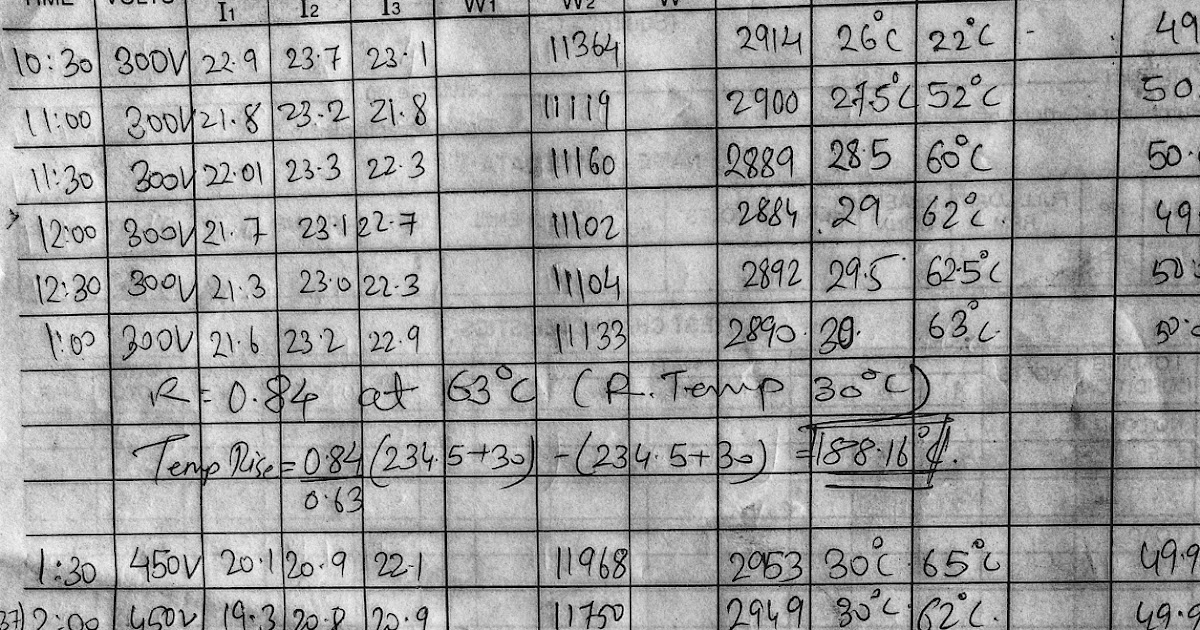 I1 I2 I3 W1 W2
10:30 300V 22.9 23.7 23.1 11364 2914 26°C 22°C - 49
11:00 300V 21.8 23.2 21.8 11119 2900 27.5°C 52°C 50
11:30 300V 22.01 23.3 22.3 11160 2889 28.5 60°C 50.
12:00 300V 21.7 23.1 22.7 11102 2884 29 62°C. 49
12:30 300V 21.3 23.0 22.3 11104 2892 29.5 62.5°C 50
1:00 300V 21.6 23.2 22.9 11133 2890 30. 63°C. 50
R = 0.84 at 63°C (R. Temp 30°C)
Temp Rise = 0.84 (234.5+30) - (234.5+30) = 188.16°C.
0.63
1:30 450V 20.1 20.9 22.1 11968 2953 30°C 65°C 49.9
2:00 450V 19.3 20.8 20.9 11750 2949 30°C 62°C. 49.9